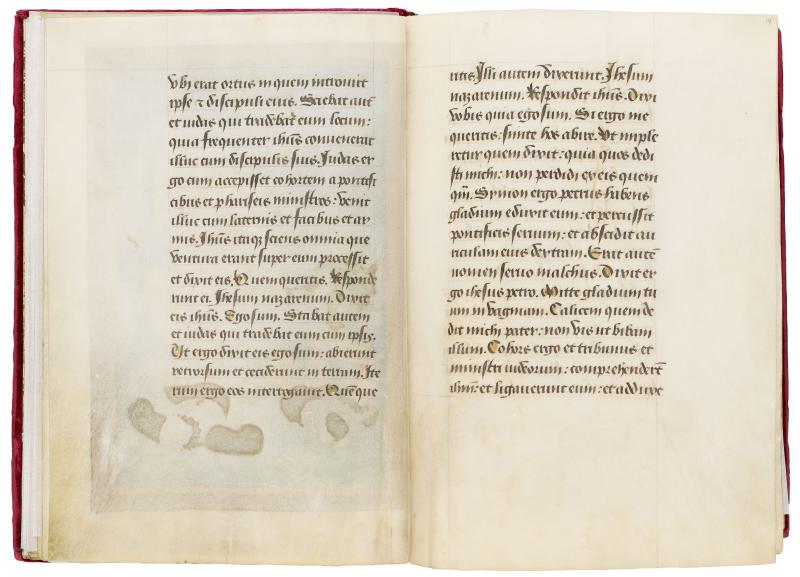 vbi erat ortus in quem introivit
ipse ⁊ discipuli eius. Sciebat aut̄
et iudas qui tradebat eum locum:
quia frequenter ihūs convenerat
illuc cum discipulis suis. Iudas er
go cum accepisset cohortem a pontifi
cibus et phariseis ministros: venit
illuc cum laternis et facibus et ar
mis. Ihūs itaqꝫ sciens omnia que
ventura erant super eum processit
et dixit eis. Quem queritis. Responde
runt ei. Ihesum nazarenum. Dixit
eis ihūs. Ego sum. Stabat autem
et iudas qui tradebat eum cum ipsis.
Ut ergo dixit eis ego sum: abierunt
retrorsum et ceciderunt in terram. Ite
rum ergo eos interrogavit. Quē que
ritis. Illi autem dixerunt. Ihesum
nazarenum. Respondit ihūs. Dixi
vobis quia ego sum. Si ergo me
queritis: sinite hos abire. Ut imple
retur quem dixit: quia quos dedi
sti michi: non perdidi ex eis quem
qm̄. Symon ergo petrus habens
gladium eduxit eum: et percussit
pontificis servum: et abscidit au
riculam eius dextram. Erat autē
nomen servo malchus. Dixit er
go ihesus petro. Mitte gladium tu
um in vaginam. Calicem quem de
dit michi pater: non vis ut bibam
illum. Cohors ergo et tribunus et
ministri iudeorum: comprehenderūt
ihm̄: et ligaverunt eum: et adduxe